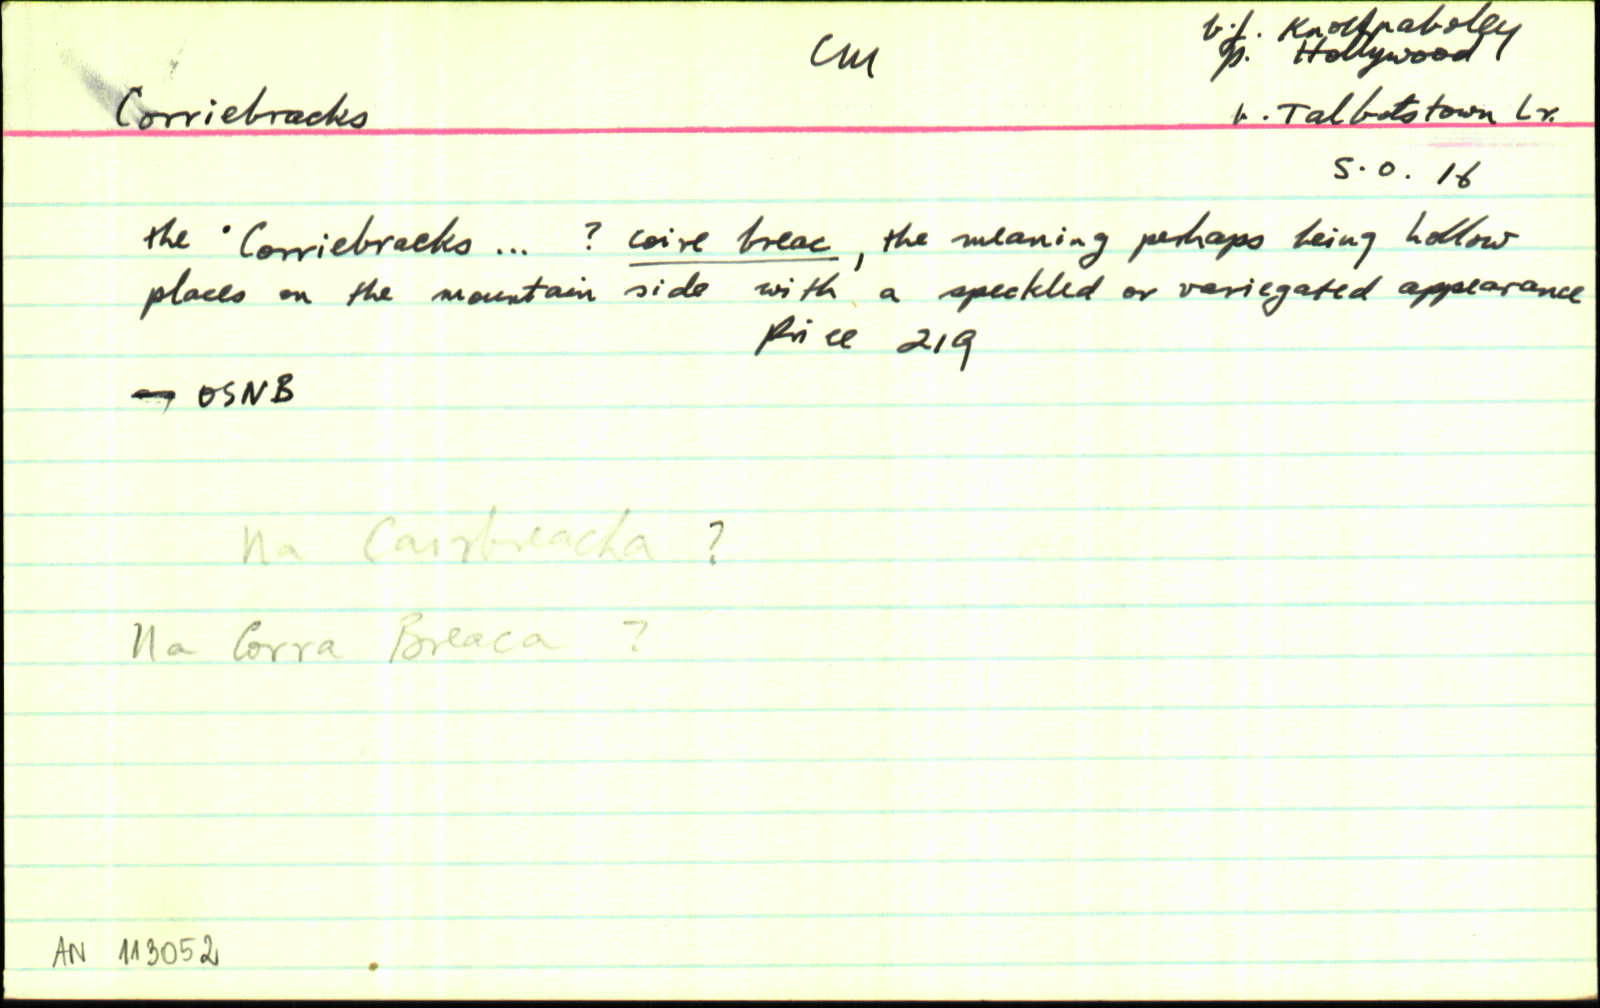 CM
b.f. Knocknaboley
p. Hollywood
Corriebracks
b. Talbotstown Lr.
S.O. 16
the 'Corriebracks ... ? coire breac, the meaning perhaps being hollow
places on the mountain side with a speckled or variegated appearance
Price 219
→ OSNB
Na Cairbreacha ?
Na Corra Breaca ?
AN 113052